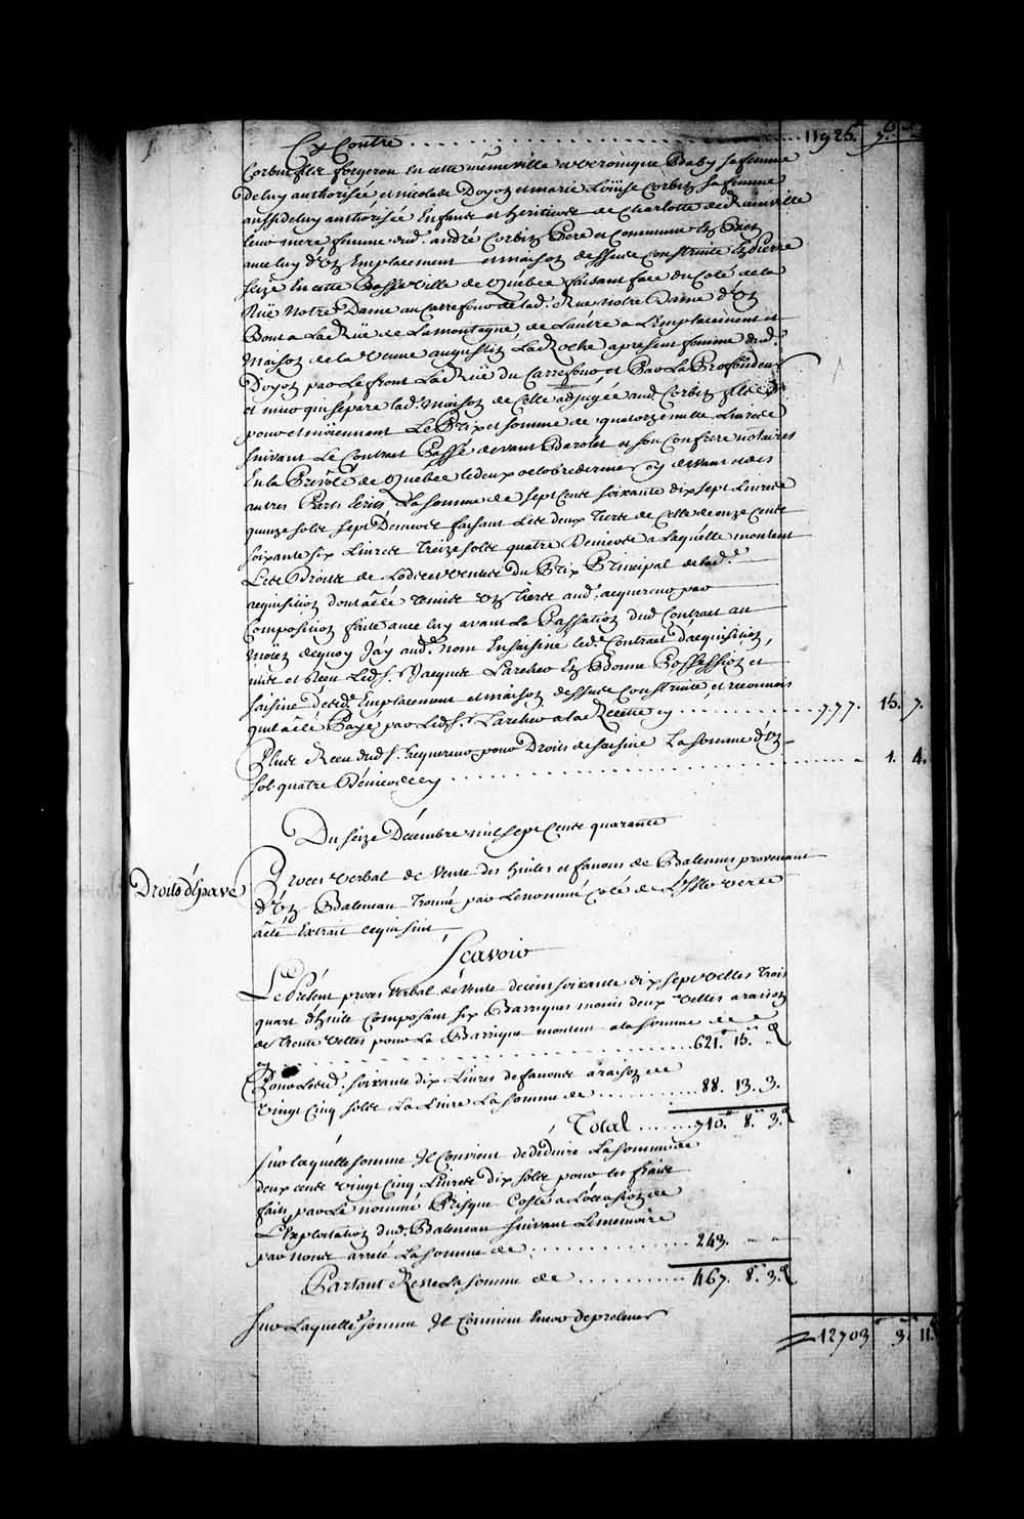 Cy Contre .......... 11925. 7.
Corbin fils forgeron en cette même ville et veronique Baby sa femme
De luy authorisée et nicolas Doyon et marie Loüise Corbin sa femme
aussy de luy authorisée Enfans et heritiers de Charlotte de Rainville
leur mere femme dud. andré Corbin Pere et Commune En Bien
avec luy d'Un Emplacement et maison dessus Construite En Pierre
scize En cette Basse Ville de Quebec faisant face du Coté de la
Rüe Notre Dame au Carrefour de lad. Rue notre Dame d'Un
Bout a La Rüe de La montagne de Lautre a L'Emplacement et
Maison de la veuve augustin La Roche apresent femme dud.
Doyon, par Le front La Rüe du Carrefour et Par La Profondeur
et mur qui sépare lad. Maison de Celle adjugée aud. Corbin fils
pour et moïennant Le Prix et somme de quatorze mille Livres
suivant Le Contract Passé devant Barolet et son Confrere notaires
En la Prevôté de Quebec le deux octobre dernier cy devant et des
autres Parts Ecrits, La somme de sept Cents soixante dix sept Livres
quinze sols sept Deniers faisant Les deux Tiers de Celle de onze Cents
soixante six Livres treize sols quatre Deniers a Laquelle montent
Les Droits de Lods et Ventes du Prix Principal de lad.e
acquisition dont a été remis Un Tiers aud. acquereur par
Composition faite avec luy avant La Passation dud. Contract au
moïen dequoy J'ay aud. nom Ensaisiné led. Contract d'acquisition,
mis et Receu Led. S. Jacques Larcher En Bonne Possession et
saisine desd. Emplacement et maison dessus Construite, et reconnois
qu'il a été Payé par Led. S. Larcher a la Recette cy .......... 777. 15. 7.
Plus Receu dud. S. Acquereur pour Droits de saisine La somme d'Un
sol quatre Deniers cy .......... 1. 4.
Du seize Décembre mil sept Cents quarante
Droits d'Epave
Procès verbal de Vente des huiles et fanons de Balennes provenant
d'Un Baleineau Trouvé par Le nommé Côté de L'Isle verte
a été Extrait ce qui suit
Scavoir
Le Présent procès verbal de Vente de cent soixante dix sept veltes trois
quart d'huile Composant six Barriques moins deux Veltes a raison
de trente veltes pour La Barrique montent a la somme de
.......... 621. 15. "
Pour Lesd. soixante dix Livres de fanons a raison de
vingt Cinq sols La Livre La somme de .......... 88. 13. 3.
Total ....... 710. 8. 3.
sur laquelle somme Il Convient de déduire La somme de
deux cents vingt Cinq Livres dix sols pour les fraix
faits par Le nommé Prisque Costé a L'occasion de
L'Exploitation dud. Baleineau suivant Le memoire
par nous arreté La somme de .......... 243. - -
Partant Reste La somme de .......... 467. 8. 3.
Sur Laquelle somme Il Convient Encor de prelever
12703 3. 11.